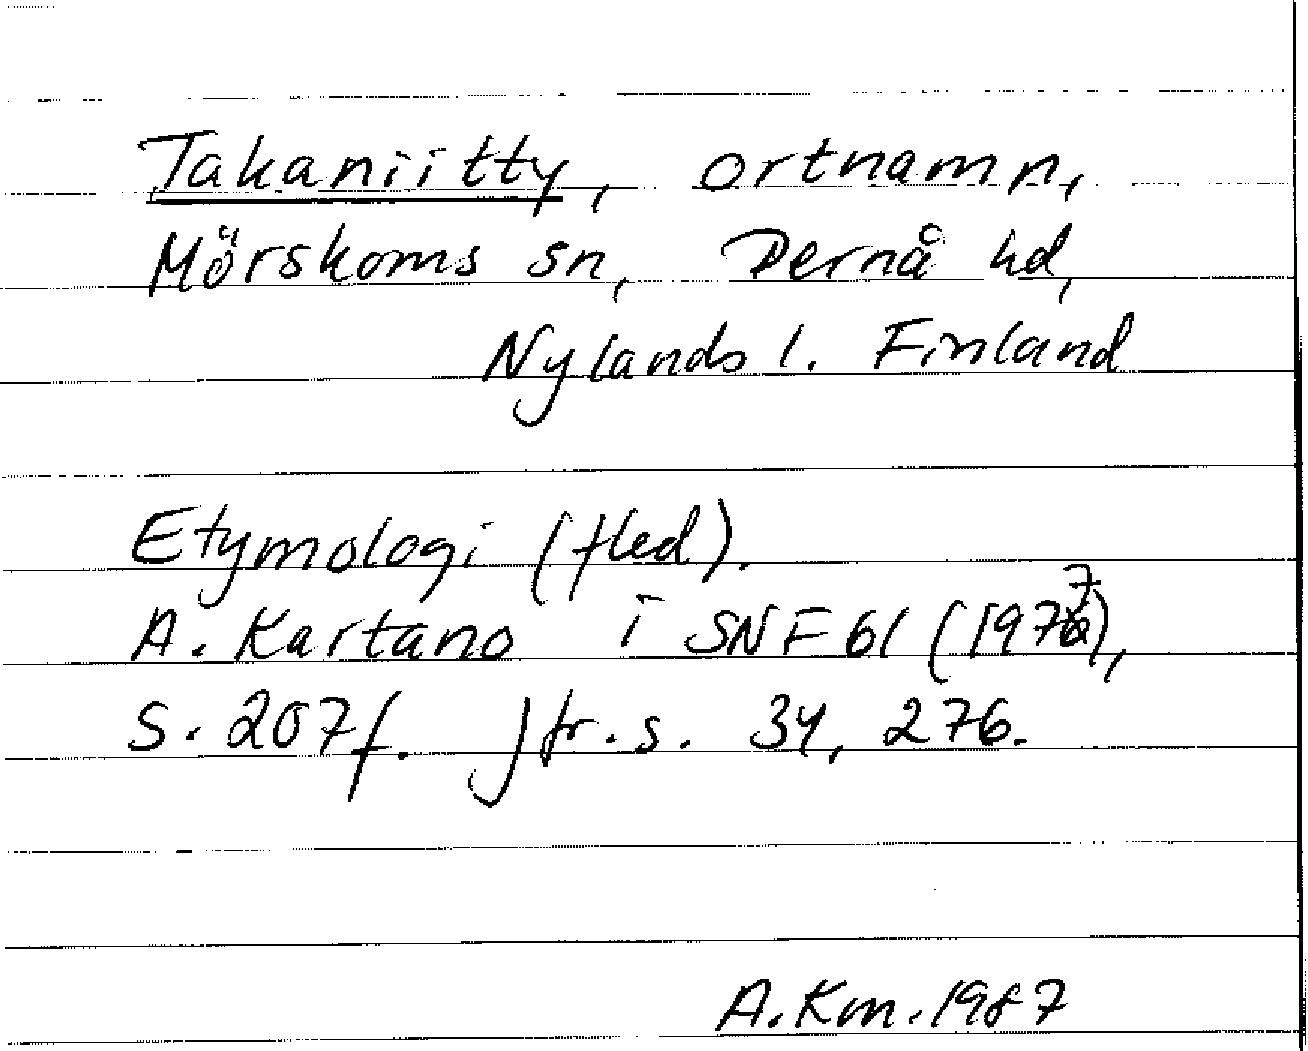 Takaniitty, ortnamn,
Mörskoms sn, Pernå hd,
Nylands l. Finland
Etymologi (fled).
A. Kartano i SNF 61 (1977),
S. 207 f. Jfr. s. 34, 276.
A.Km. 1987